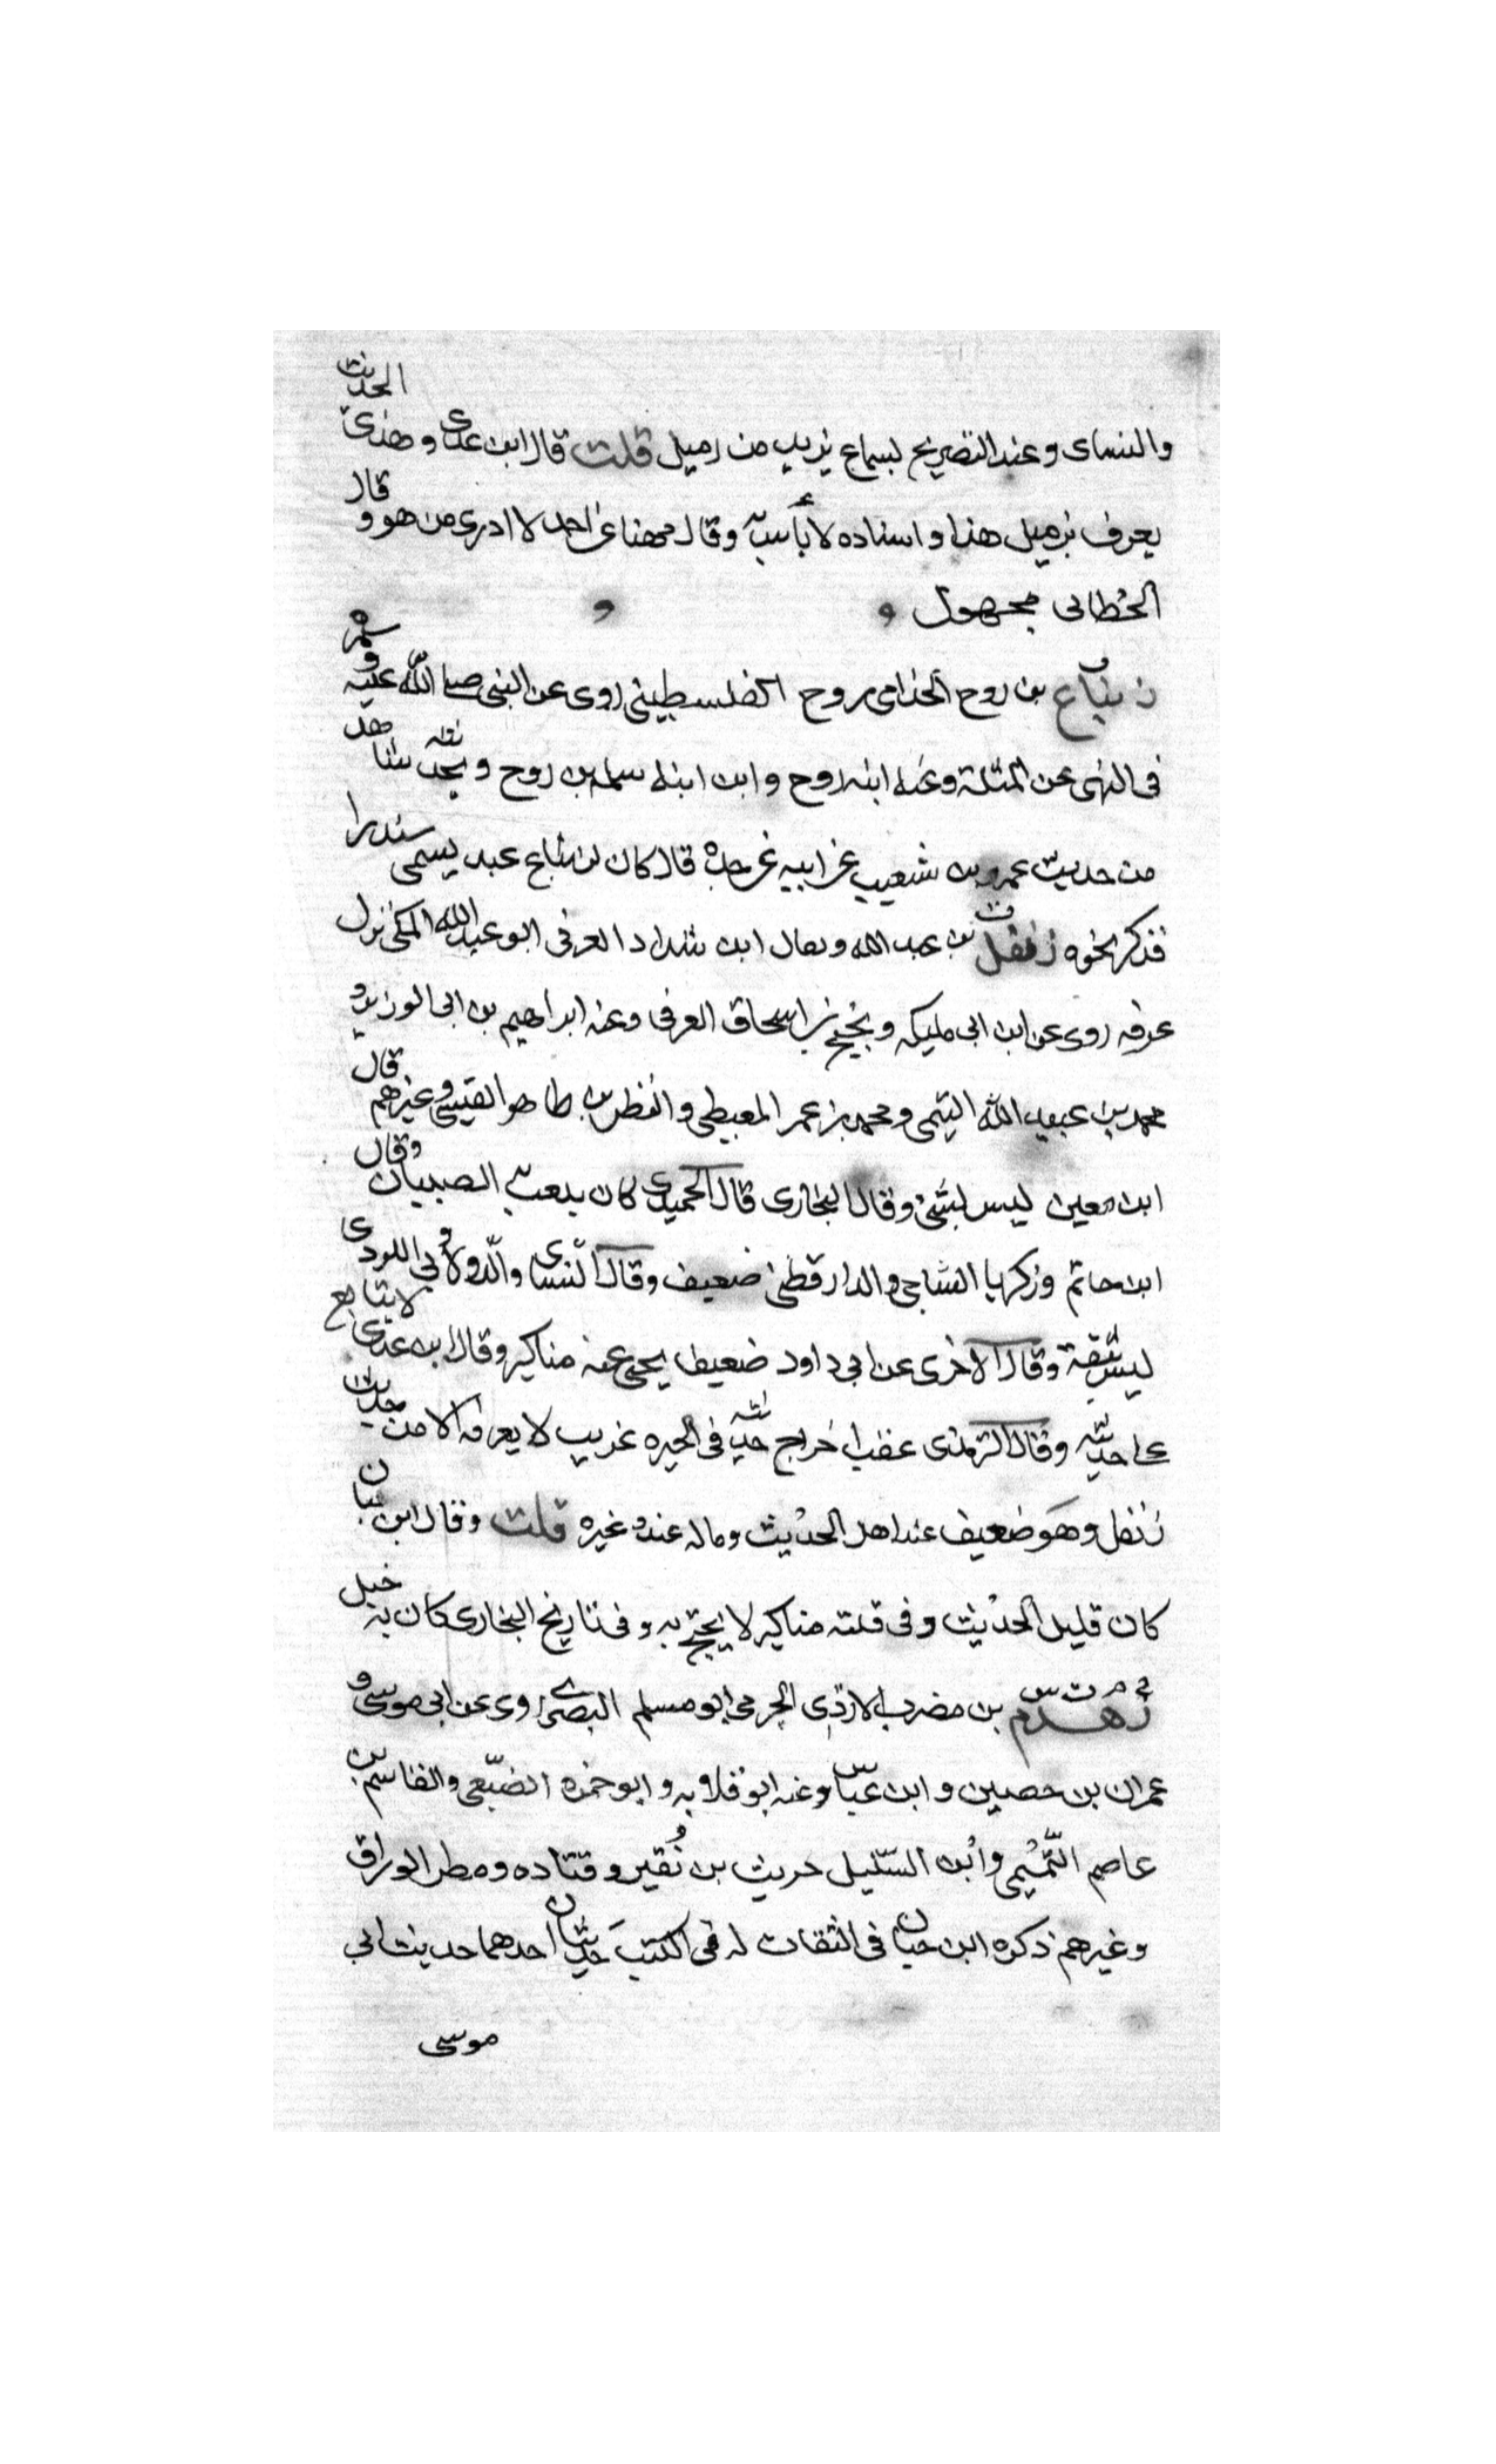 والنساى وعنده التصريح بسماع يزيد من زميل قلت قال ابن عدى وهذا الحديث
يعرف بزميل هذا واسناده لا بأس به وقال مهنا عن احمد لا ادرى من هو وقال
الخطابى مجهول
زنباع بن روح الجذامى بن روح الفلسطينى روى عن النبى صلى الله عليه وسلم
فى النهى عن المثلة وعنه ابنه روح وابن ابنه سلمه بن روح و
من حديث عمرو بن شعيب عن ابيه عن جده قال كان لزنباع عبد يسمى سندرا
فذكر نحوه زنفل بن عبد الله ويقال ابن شداد العرفى ابو عبد الله المكى نزل
عرفه روى عن ابن ابى مليكه ونجيح بن اسحاق العرفى وعنه ابراهيم بن ابى الوزير و
محمد بن عبيد الله التيمى ومحمد بن عمر المعيطى والنظر بن طاهر القيسى وغيرهم قال
ابن معين ليس بشئ وقال البخارى قال الحميدى كان يلعب به الصبيان وقال
ابن حاتم وزكريا الساجى والدارقطنى ضعيف وقال النساى والدولابى
ليس بثقة وقال الآخرى عن ابى داود ضعيف يجئ عنه مناكير وقال ابن عدى لا يتابع
على حديثه وقال الترمذى عقب اخراج حديثه فى الخيره غريب لا يعرفه الا من حديث
زنفل وهو ضعيف عند اهل الحديث وماله عنده غيره قلت وقال ابن حبان
كان قليل الحديث وفى قلته مناكير لا يحتج به وفى تاريخ البخارى كان به خبل
خ م ت س زهدم بن مضرب الازدى الجرمى ابو مسلم البصرى روى عن ابى موسى و
عمران بن حصين وابن عباس وعنه ابو قلابه وابو جمره الضبعى والقاسم بن
عاصم التميمى وابن السليل حريث بن نقير وقتاده ومطر الوراق
وغيرهم ذكره ابن حبان فى الثقات له فى الكتب حديثان احدهما حديث ابى
موسى